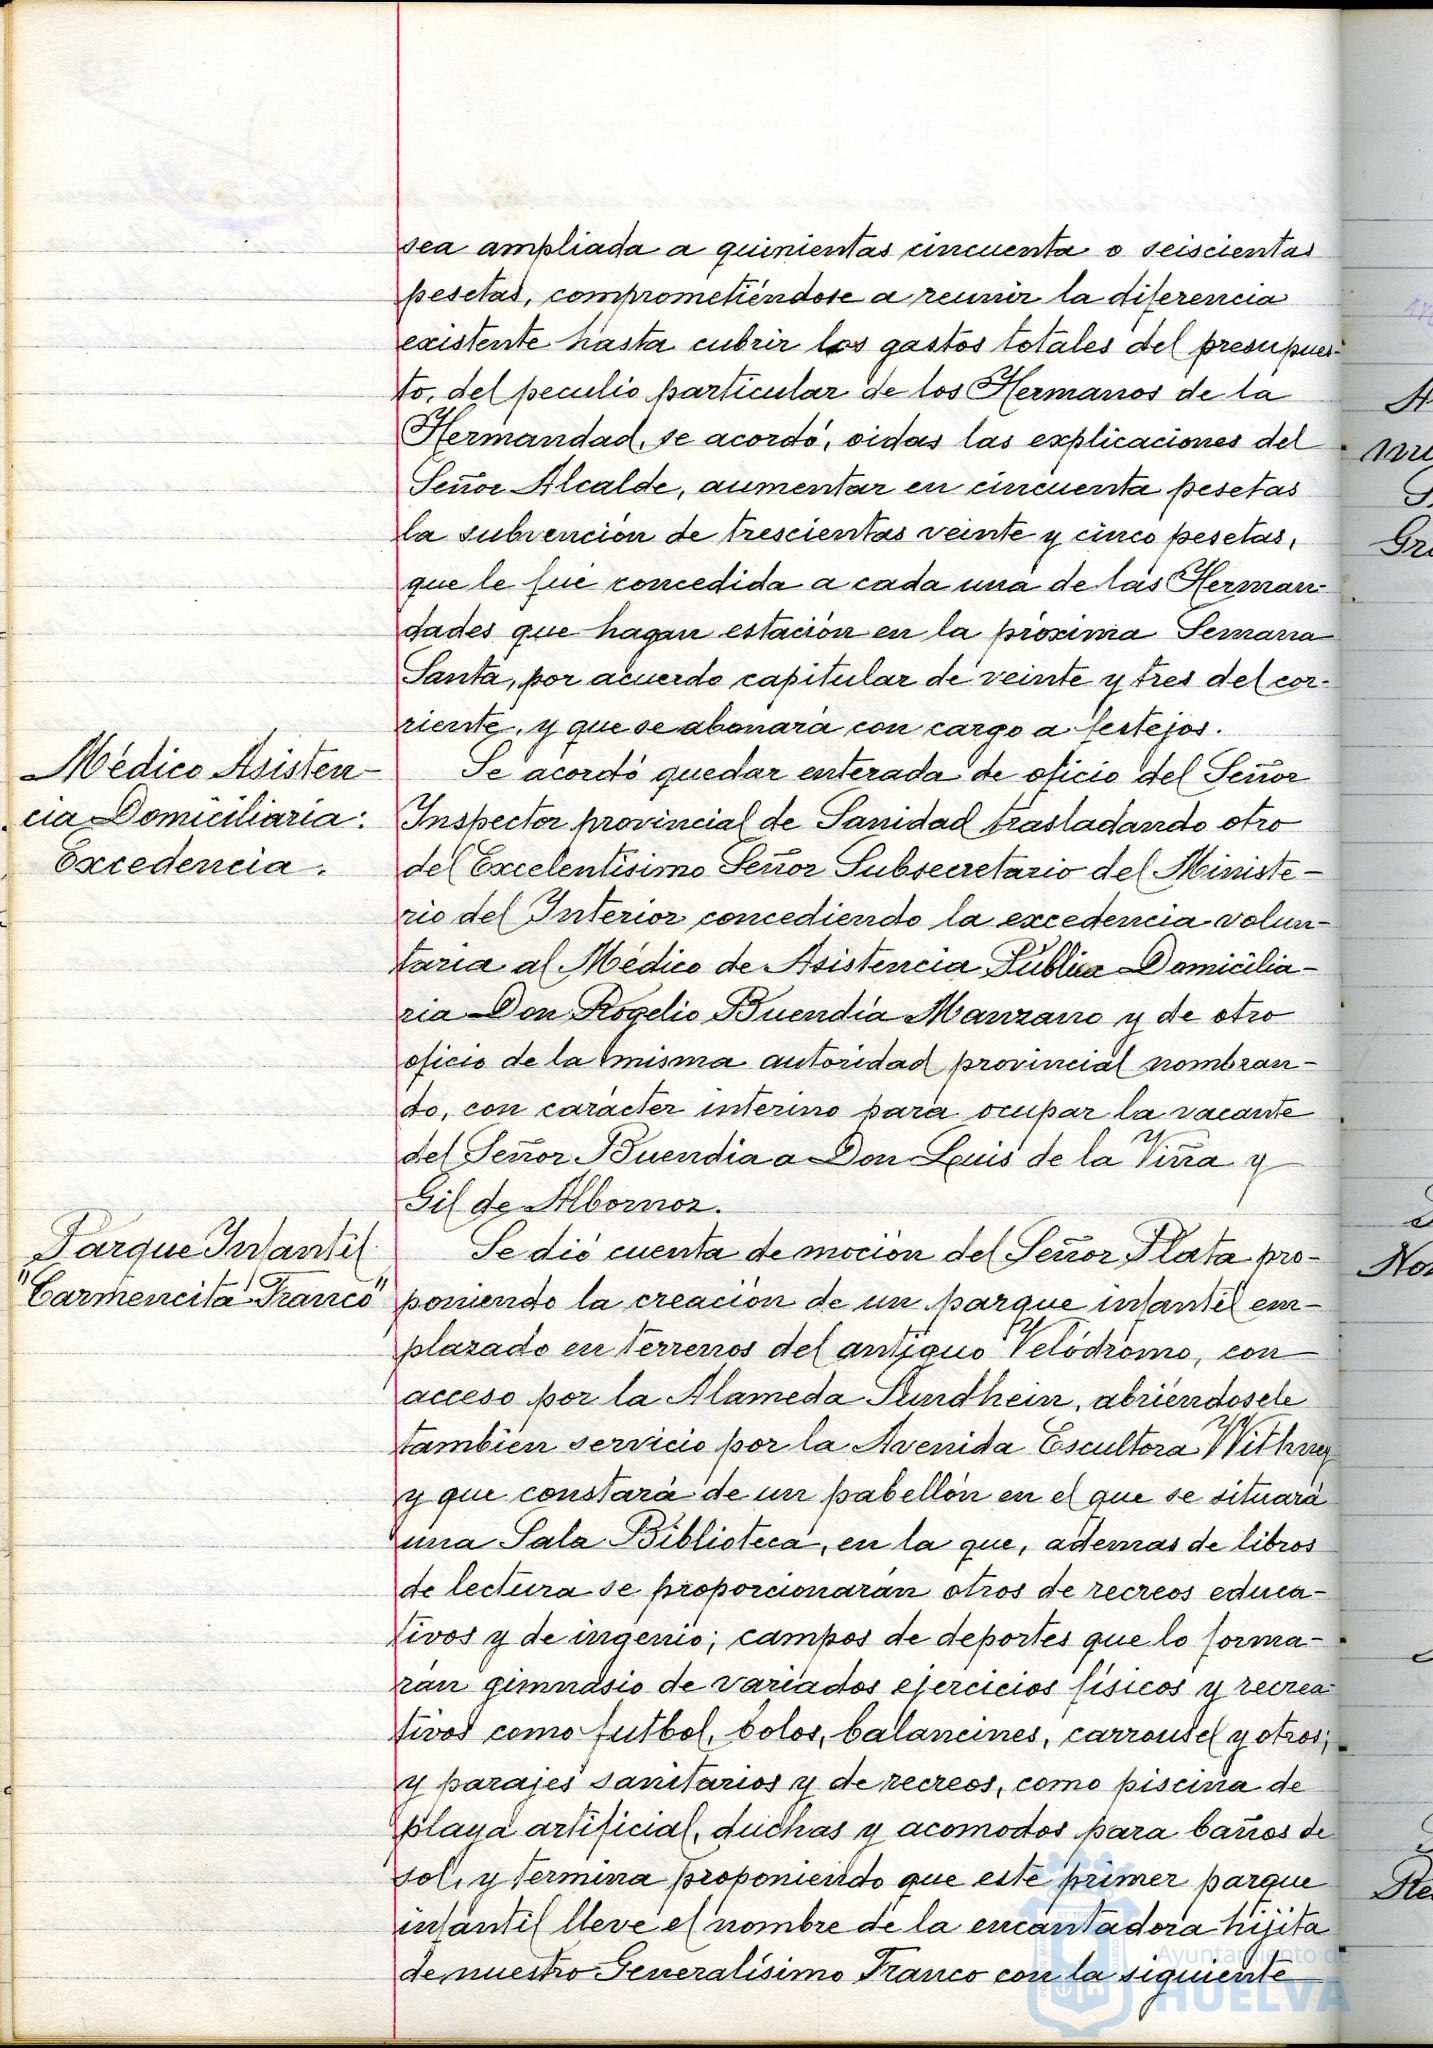 sea ampliada a quinientas cincuenta o seiscientas
pesetas, comprometiéndose a reunir la diferencia
existente hasta cubrir los gastos totales del presupues-
to, del peculio particular de los Hermanos de la
Hermandad, se acordó, oidas las explicaciones del
Señor Alcalde, aumentar en cincuenta pesetas
la subvención de trescientas veinte y cinco pesetas,
que le fué concedida a cada una de las Herman-
dades que hagan estación en la próxima Semana
Santa, por acuerdo capitular de veinte y tres del cor-
riente, y que se abonará con cargo a festejos.
Médico Asisten-
cia Domiciliaria:
Excedencia.
Se acordó quedar enterada de oficio del Señor
Inspector provincial de Sanidad trasladando otro
del Excelentísimo Señor Subsecretario del Ministe-
rio del Interior concediendo la excedencia volun-
taria al Médico de Asistencia Pública Domicilia-
ria Don Rogelio Buendía Manzano y de otro
oficio de la misma autoridad provincial nombran-
do, con carácter interino para ocupar la vacante
del Señor Buendia a Don Luis de la Viña y
Gil de Albornoz.
Parque Infantil
"Carmencita Franco"
Se dió cuenta de moción del Señor Plata pro-
poniendo la creación de un parque infantil em-
plazado en terrenos del antiguo Velódromo, con
acceso por la Alameda Sundhein, abriéndosele
también servicio por la Avenida Escultora Withney
y que constará de un pabellón en el que se situará
una Sala Biblioteca, en la que, ademas de libros
de lectura se proporcionarán otros de recreos educa-
tivos y de ingenio; campos de deportes que lo forma-
rán gimnasio de variados ejercicios físicos y recrea-
tivos como futbol, bolos, balancines, carrousel y otros;
y parajes sanitarios y de recreos, como piscina de
playa artificial, duchas y acomodos para baños de
sol, y termina proponiendo que este primer parque
infantil lleve el nombre de la encantadora hijita
de nuestro Generalísimo Franco con la siguiente
Ayuntamiento de
HUELVA